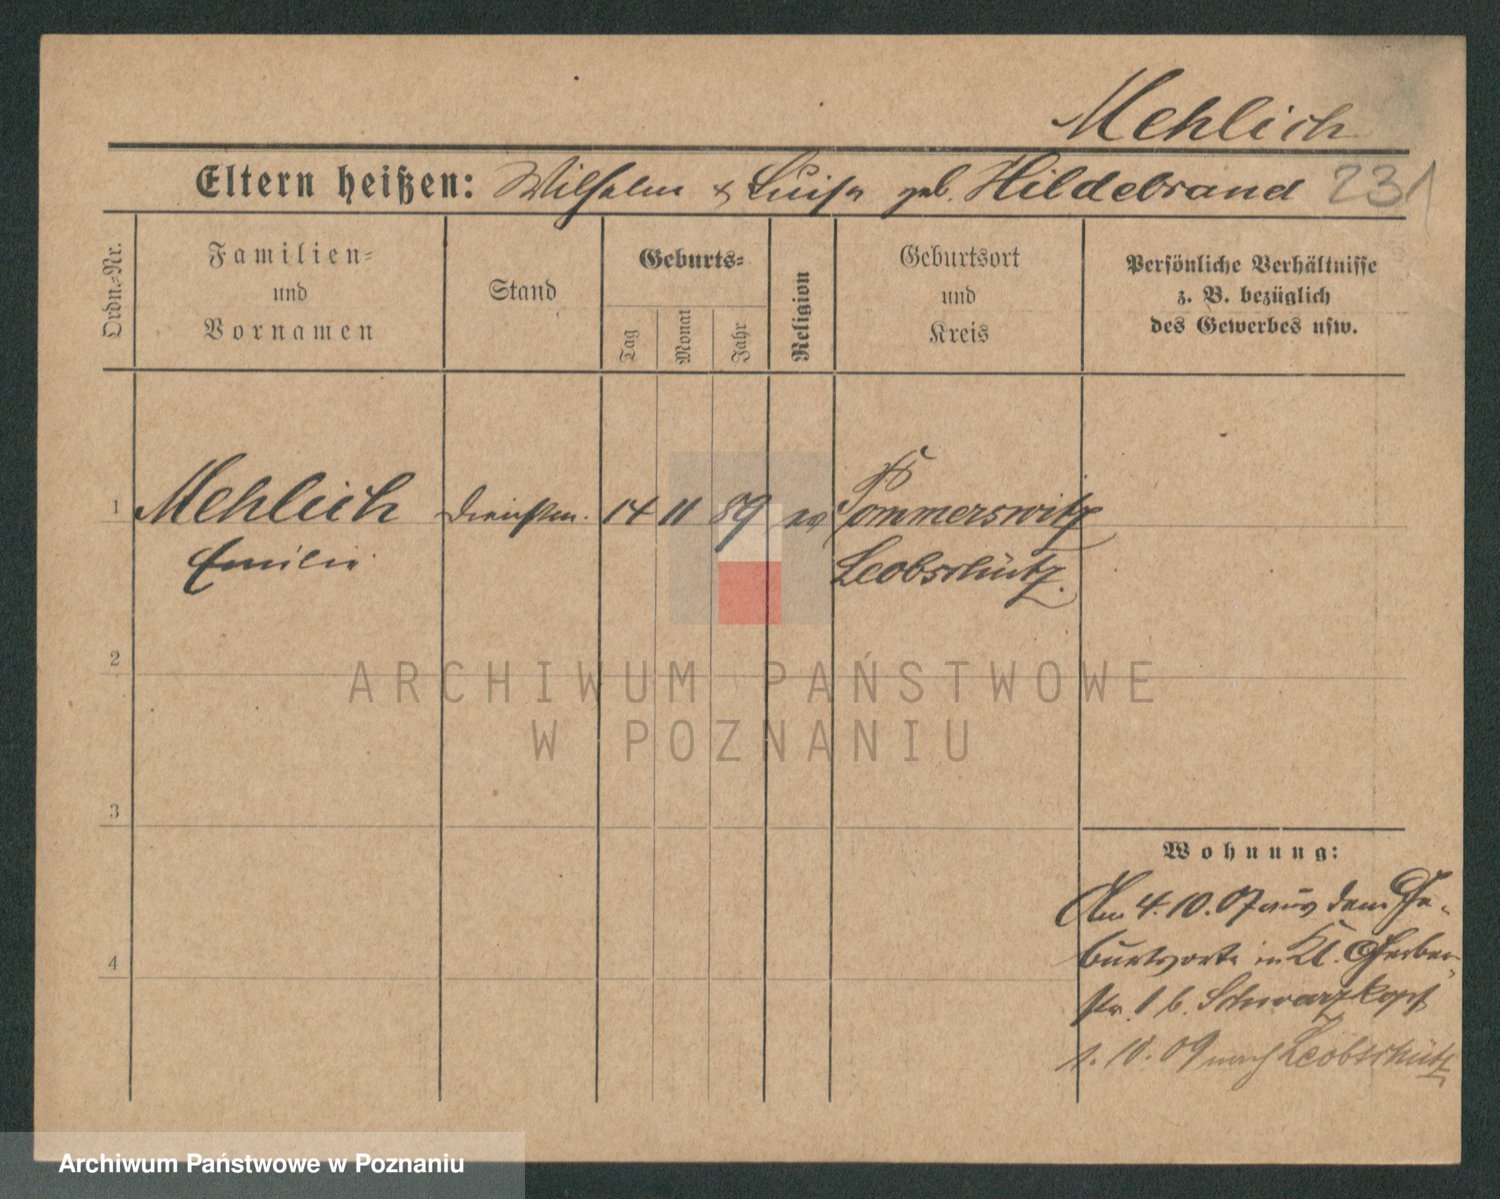 Mehlich
Eltern heißen: Wilhelm & Luise geb. Hildebrand 231
Ordn.-Nr.
Familien-
und
Vornamen
Stand
Geburts-
Tag
Monat
Jahr
Religion
Geburtsort
und
Kreis
Persönliche Verhältnisse
z. B. bezüglich
des Gewerbes usw.
1 Mehlich Dienstm. 14 11 89 ev Pommerswitz
Emilie Leobschütz.
2
ARCHIWUM PAŃSTWOWE
W POZNANIU
3
Wohnung:
Am 4.10.07 aus dem Ge-
burtsorte in Kl. Gerber-
str. 1 b. Schwarzkopf
4
1.10.09 nach Leobschütz
Archiwum Państwowe w Poznaniu